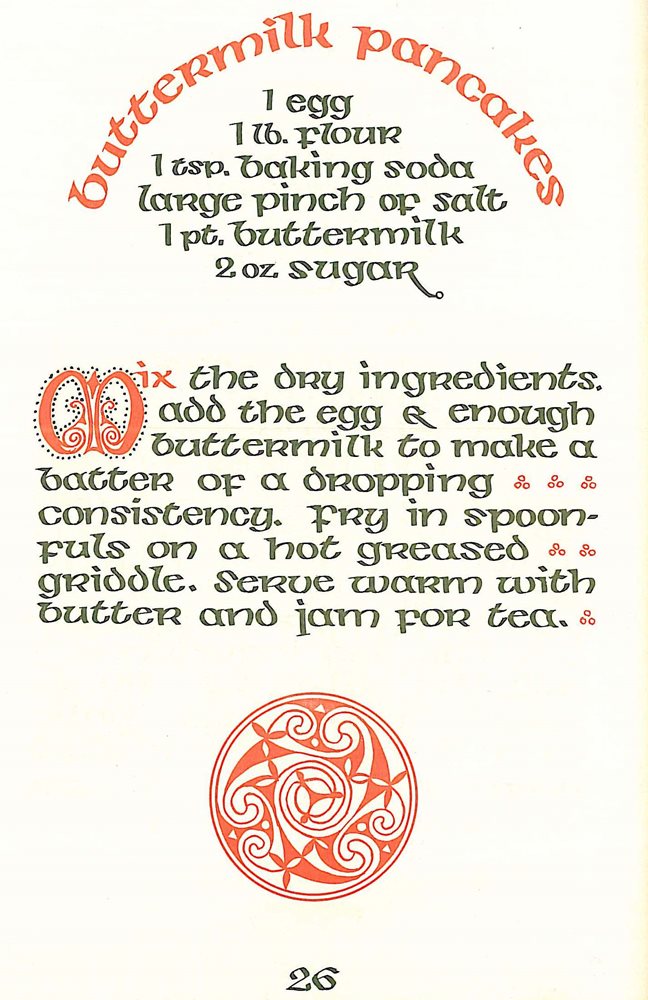 buttermilk pancakes
1 egg
1 lb. flour
1 tsp. baking soda
large pinch of salt
1 pt. buttermilk
2 oz sugar
Mix the dry ingredients.
add the egg & enough
buttermilk to make a
batter of a dropping
consistency. Fry in spoon-
fuls on a hot greased
griddle. Serve warm with
butter and jam for tea.
26